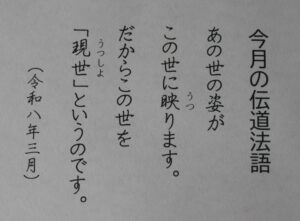 今月の伝道法語
あの世の姿が
この世に映ります。
うつ
だからこの世を
「現世」というのです。
うつしよ
（令和八年三月）